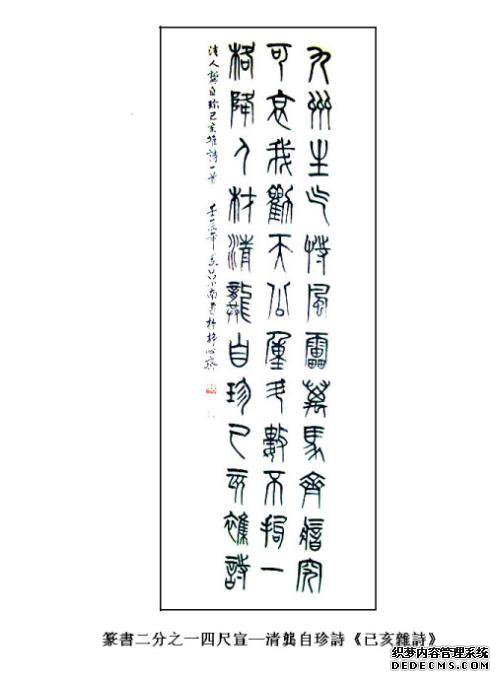 九州生气恃風雷萬馬齊瘖究
可哀我勸天公重斗數不拘一
格降人材清龔自珍己亥雜詩
清人龔自珍己亥雜詩一首 壬辰年
篆書二分之一四尺宣—清龔自珍詩《已亥雜詩》
织梦内容管理系统
DEDECMS.COM